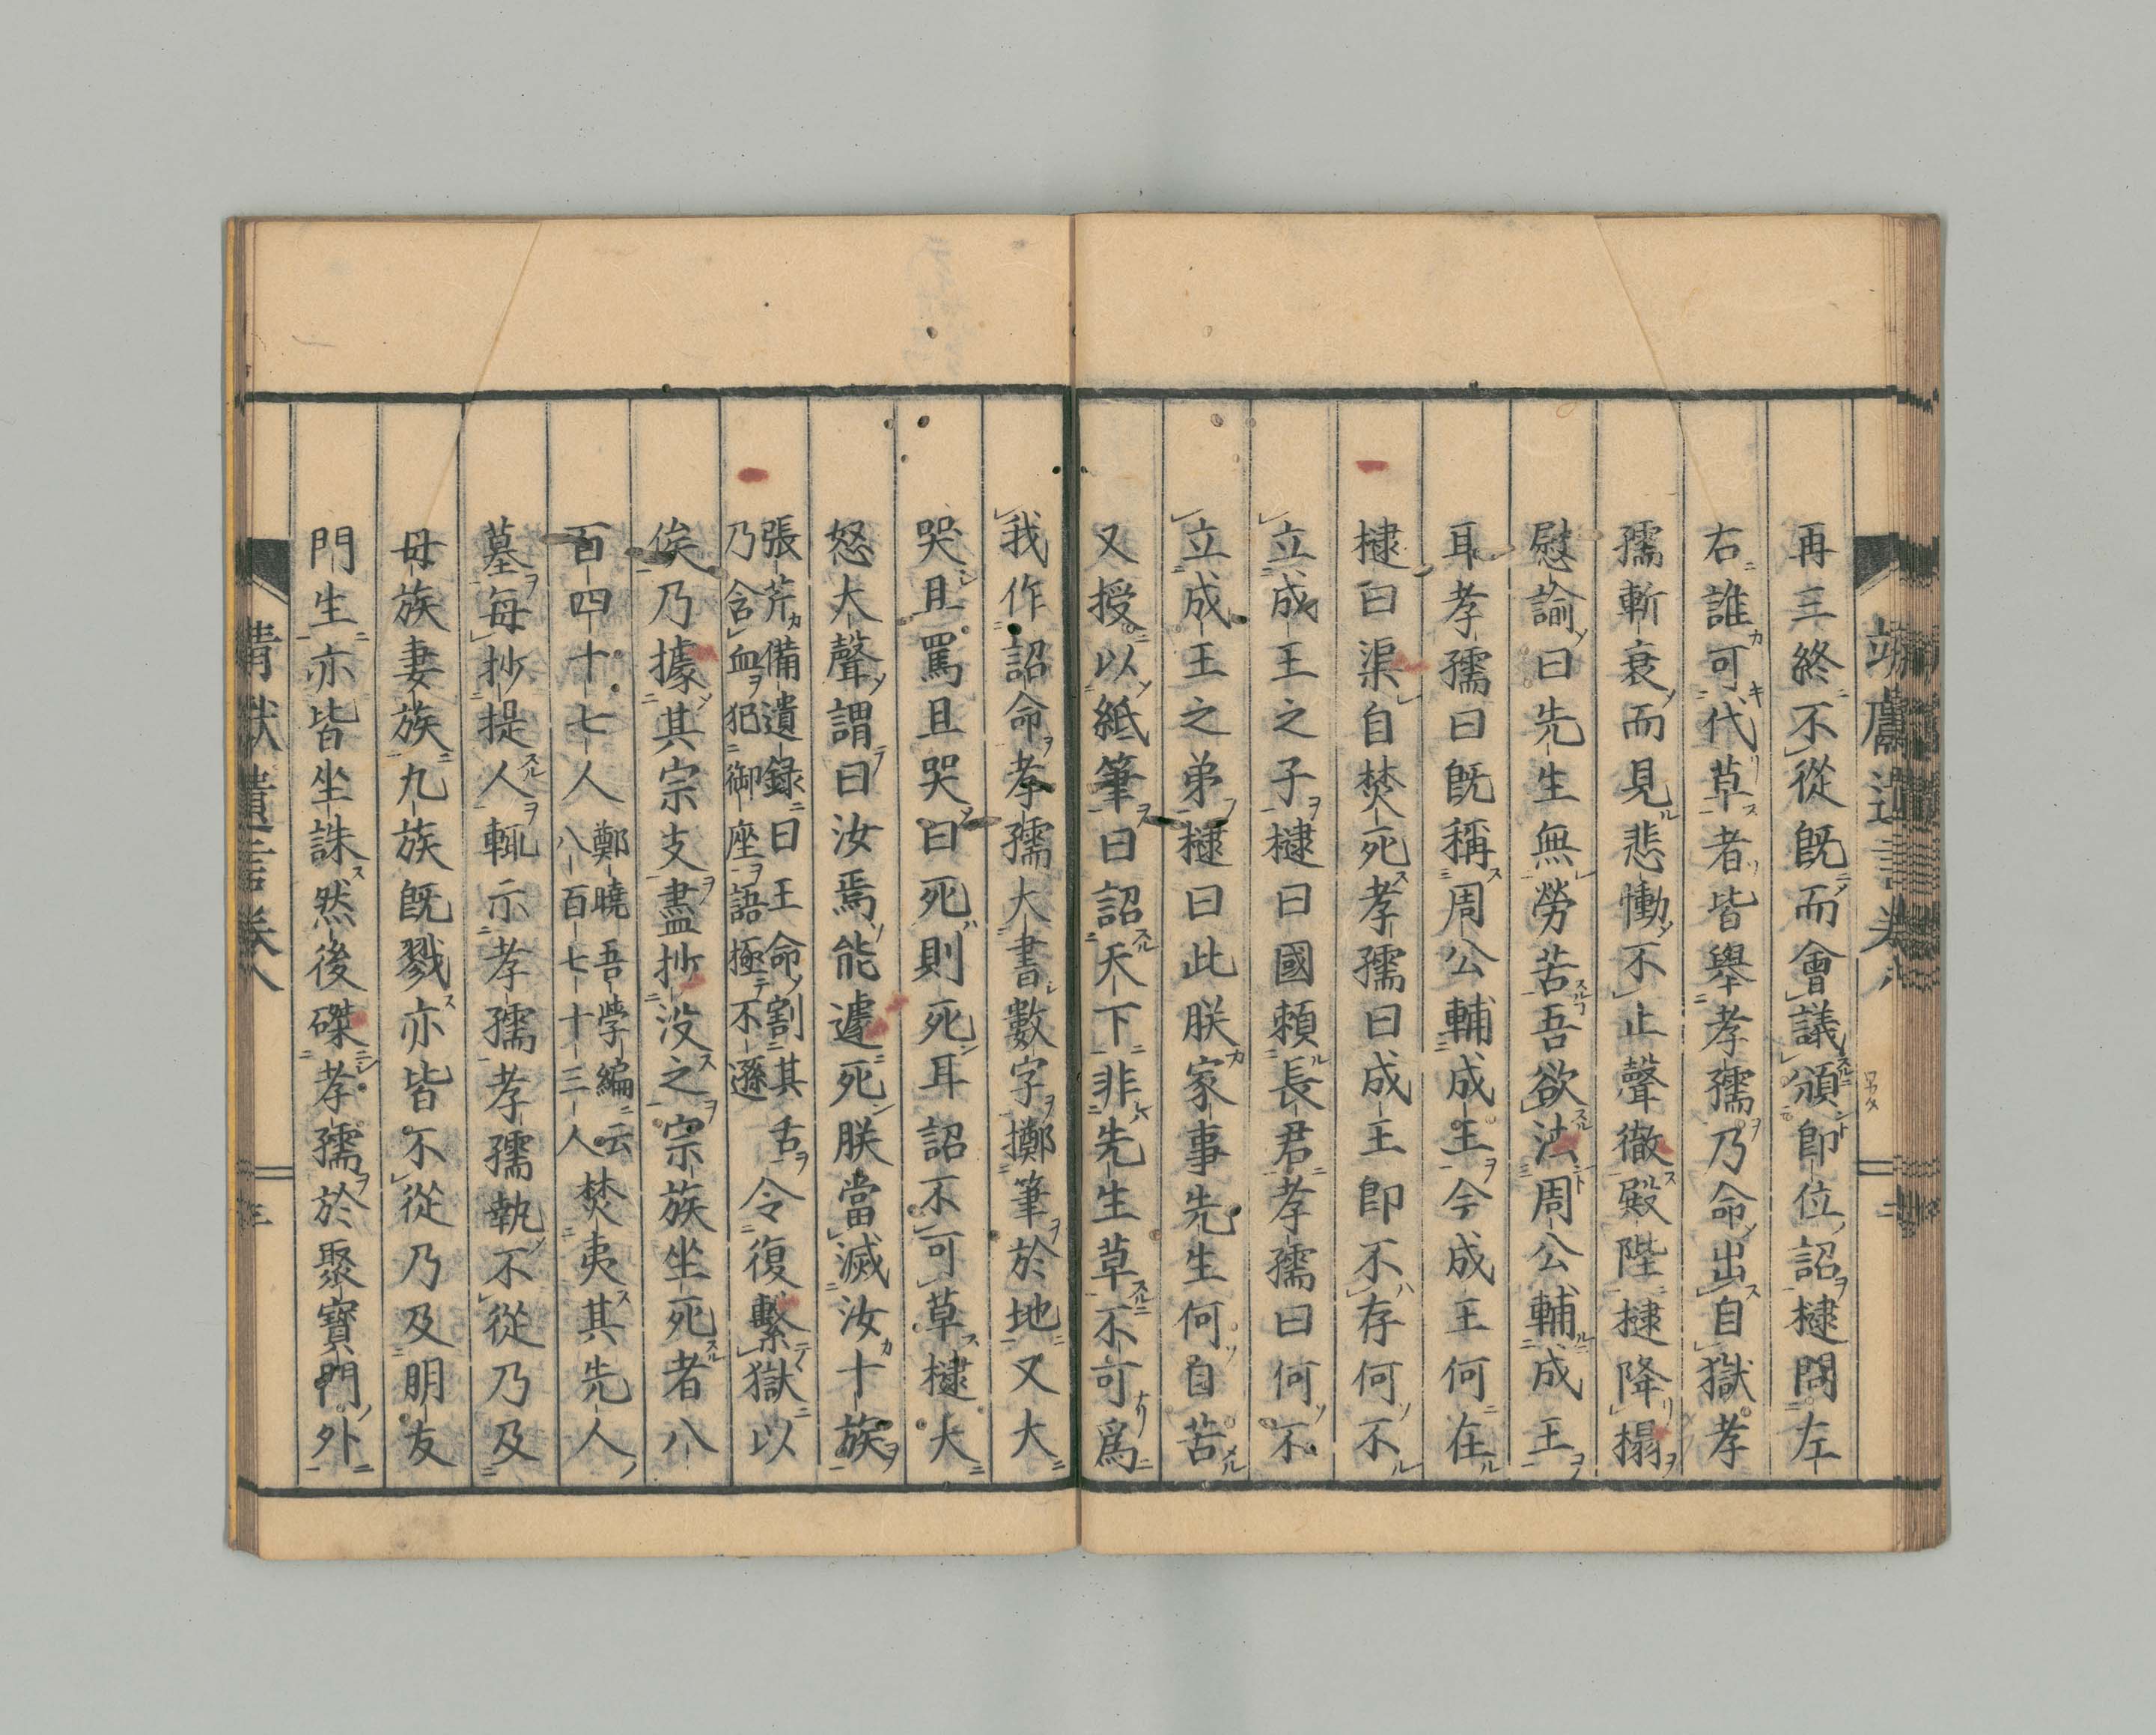 再三終不從既而會議頒即位詔棣問左
右誰可代草者皆舉孝孺乃命出自獄孝
孺斬衰而見悲慟不止聲徹殿陛棣降榻
慰諭曰先生無勞苦吾欲法周公輔成王
耳孝孺曰既稱周公輔成王今成王何在
棣曰渠自焚死孝孺曰成王即不存何不
立成王之子棣曰國頼長君孝孺曰何不
立成王之弟棣曰此朕家事先生何自苦
又授以紙筆曰詔天下非先生草不可爲
我作詔命孝孺大書數字擲筆於地又大
哭且罵且哭曰死則死耳詔不可草棣大
怒大聲謂曰汝焉能遽死朕當滅汝十族
張芹備遺録曰王命割其舌
乃含血犯御座語極不遜
令復繫獄以
俟乃據其宗支盡抄没之宗族坐死者八
百四十七人
鄭曉吾學編云
八百七十三人
焚夷其先人
墓毎抄提人輒示孝孺孝孺執不從乃及
母族妻族九族既戮亦皆不從乃及朋友
門生亦皆坐誅然後磔孝孺於聚寶門外
靖獻遺言卷八
三